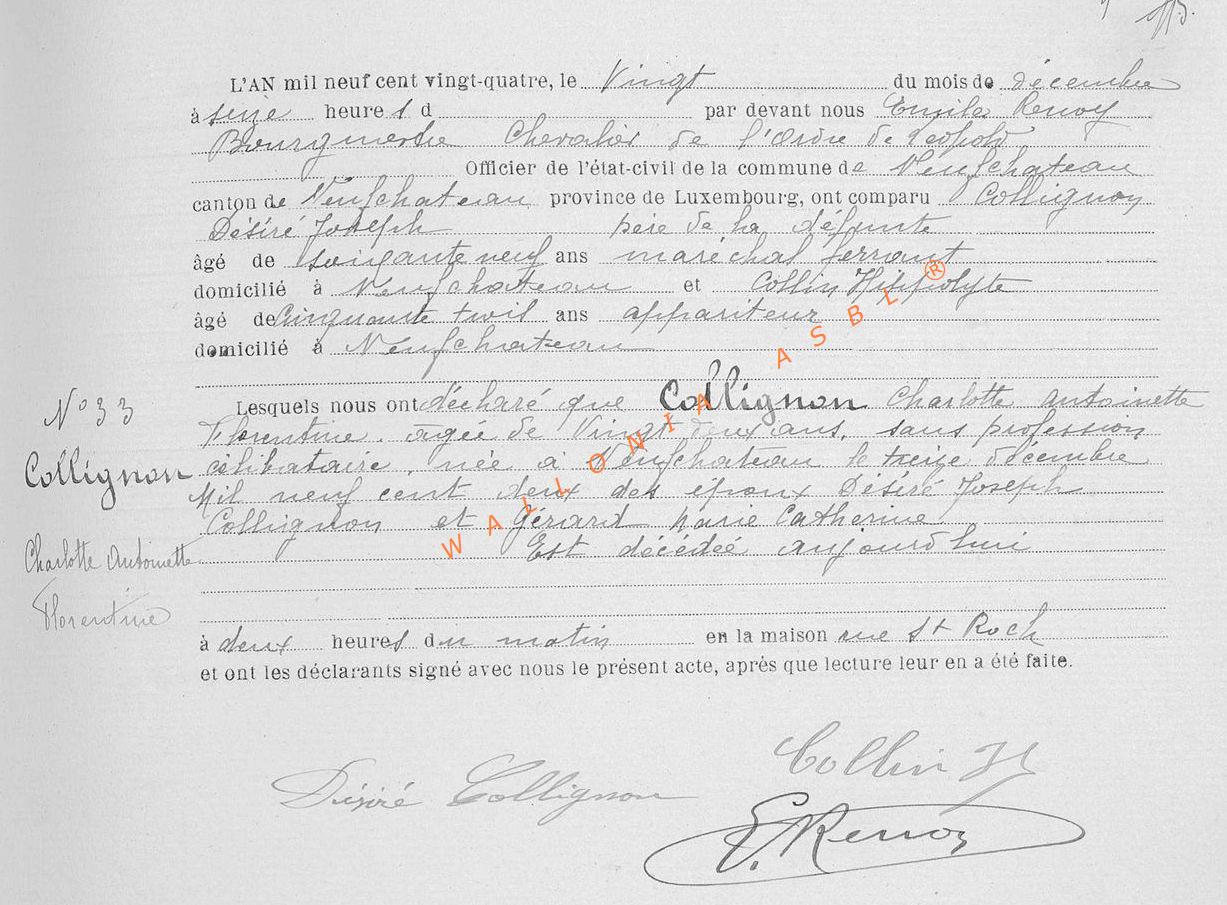 L'AN mil neuf cent vingt-quatre, le Vingt du mois de décembre
à seize heures d par devant nous Emile Renoy
Bourgmestre Chevalier de l'Ordre de Léopold
Officier de l'état-civil de la commune de Neufchateau
canton de Neufchateau province de Luxembourg, ont comparu Collignon
Désiré Joseph père de la défunte
âgé de soixante neuf ans maréchal ferrant
domicilié à Neufchateau et Collin Hippolyte
âgé de Cinquante trois ans appariteur
domicilié à Neufchateau
N° 33
Collignon
Charlotte Antoinette
Florentine
Lesquels nous ont déclaré que Collignon Charlotte Antoinette
Florentine, agée de Vingt deux ans, sans profession
célibataire, née à Neufchateau le treize décembre
Mil neuf cent deux des époux Désiré Joseph
Collignon et Gérard Marie Catherine
Est décédée aujourd'hui
à deux heures du matin en la maison rue St Roch
et ont les déclarants signé avec nous le présent acte, après que lecture leur en a été faite.
Collin H
Désiré Collignon
E. Renoy
WALLONIA ASBL ®